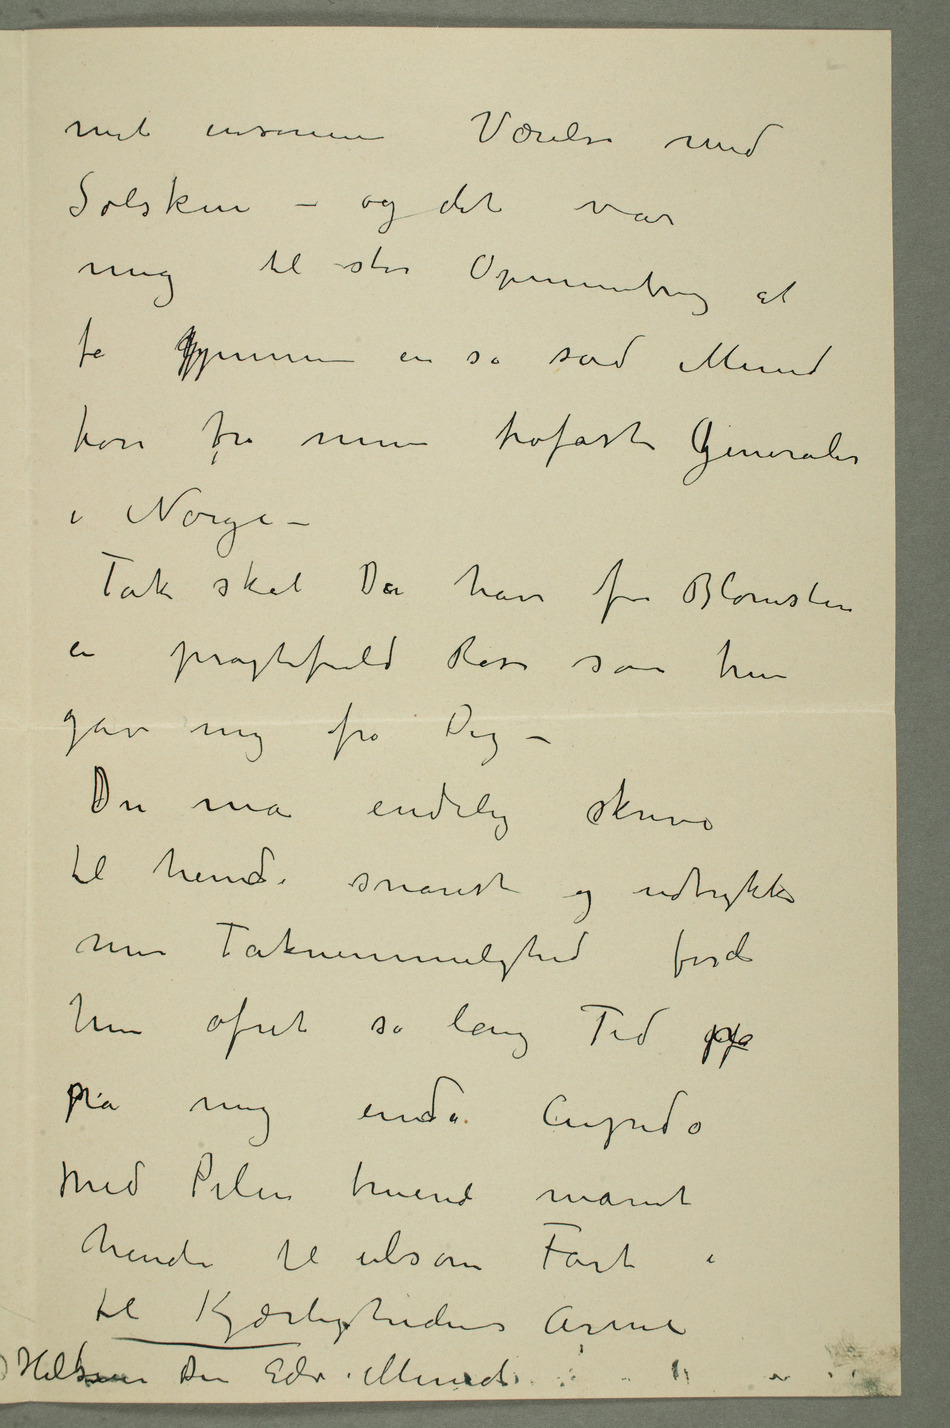 mit ensomme Værelse med
Solskin – og det var
mig til stor Opmuntring at
få gjennem en så sød Mund
høre fra min trofaste Generaler
i Norge –
Tak skal Du have for Blomsten
en prægtfuld Rose som hun
gav mig fra Dig –
Du må endelig skrive
til hende snarest og udtrykke
min Taknemmelighed fordi
hun ofret så lang Tid på
på mig endda Cupido
med Pilen truende manet
hende til ilsom Fart i
til Kjærlighedens Arme
Hilsen Din Edv. Munch